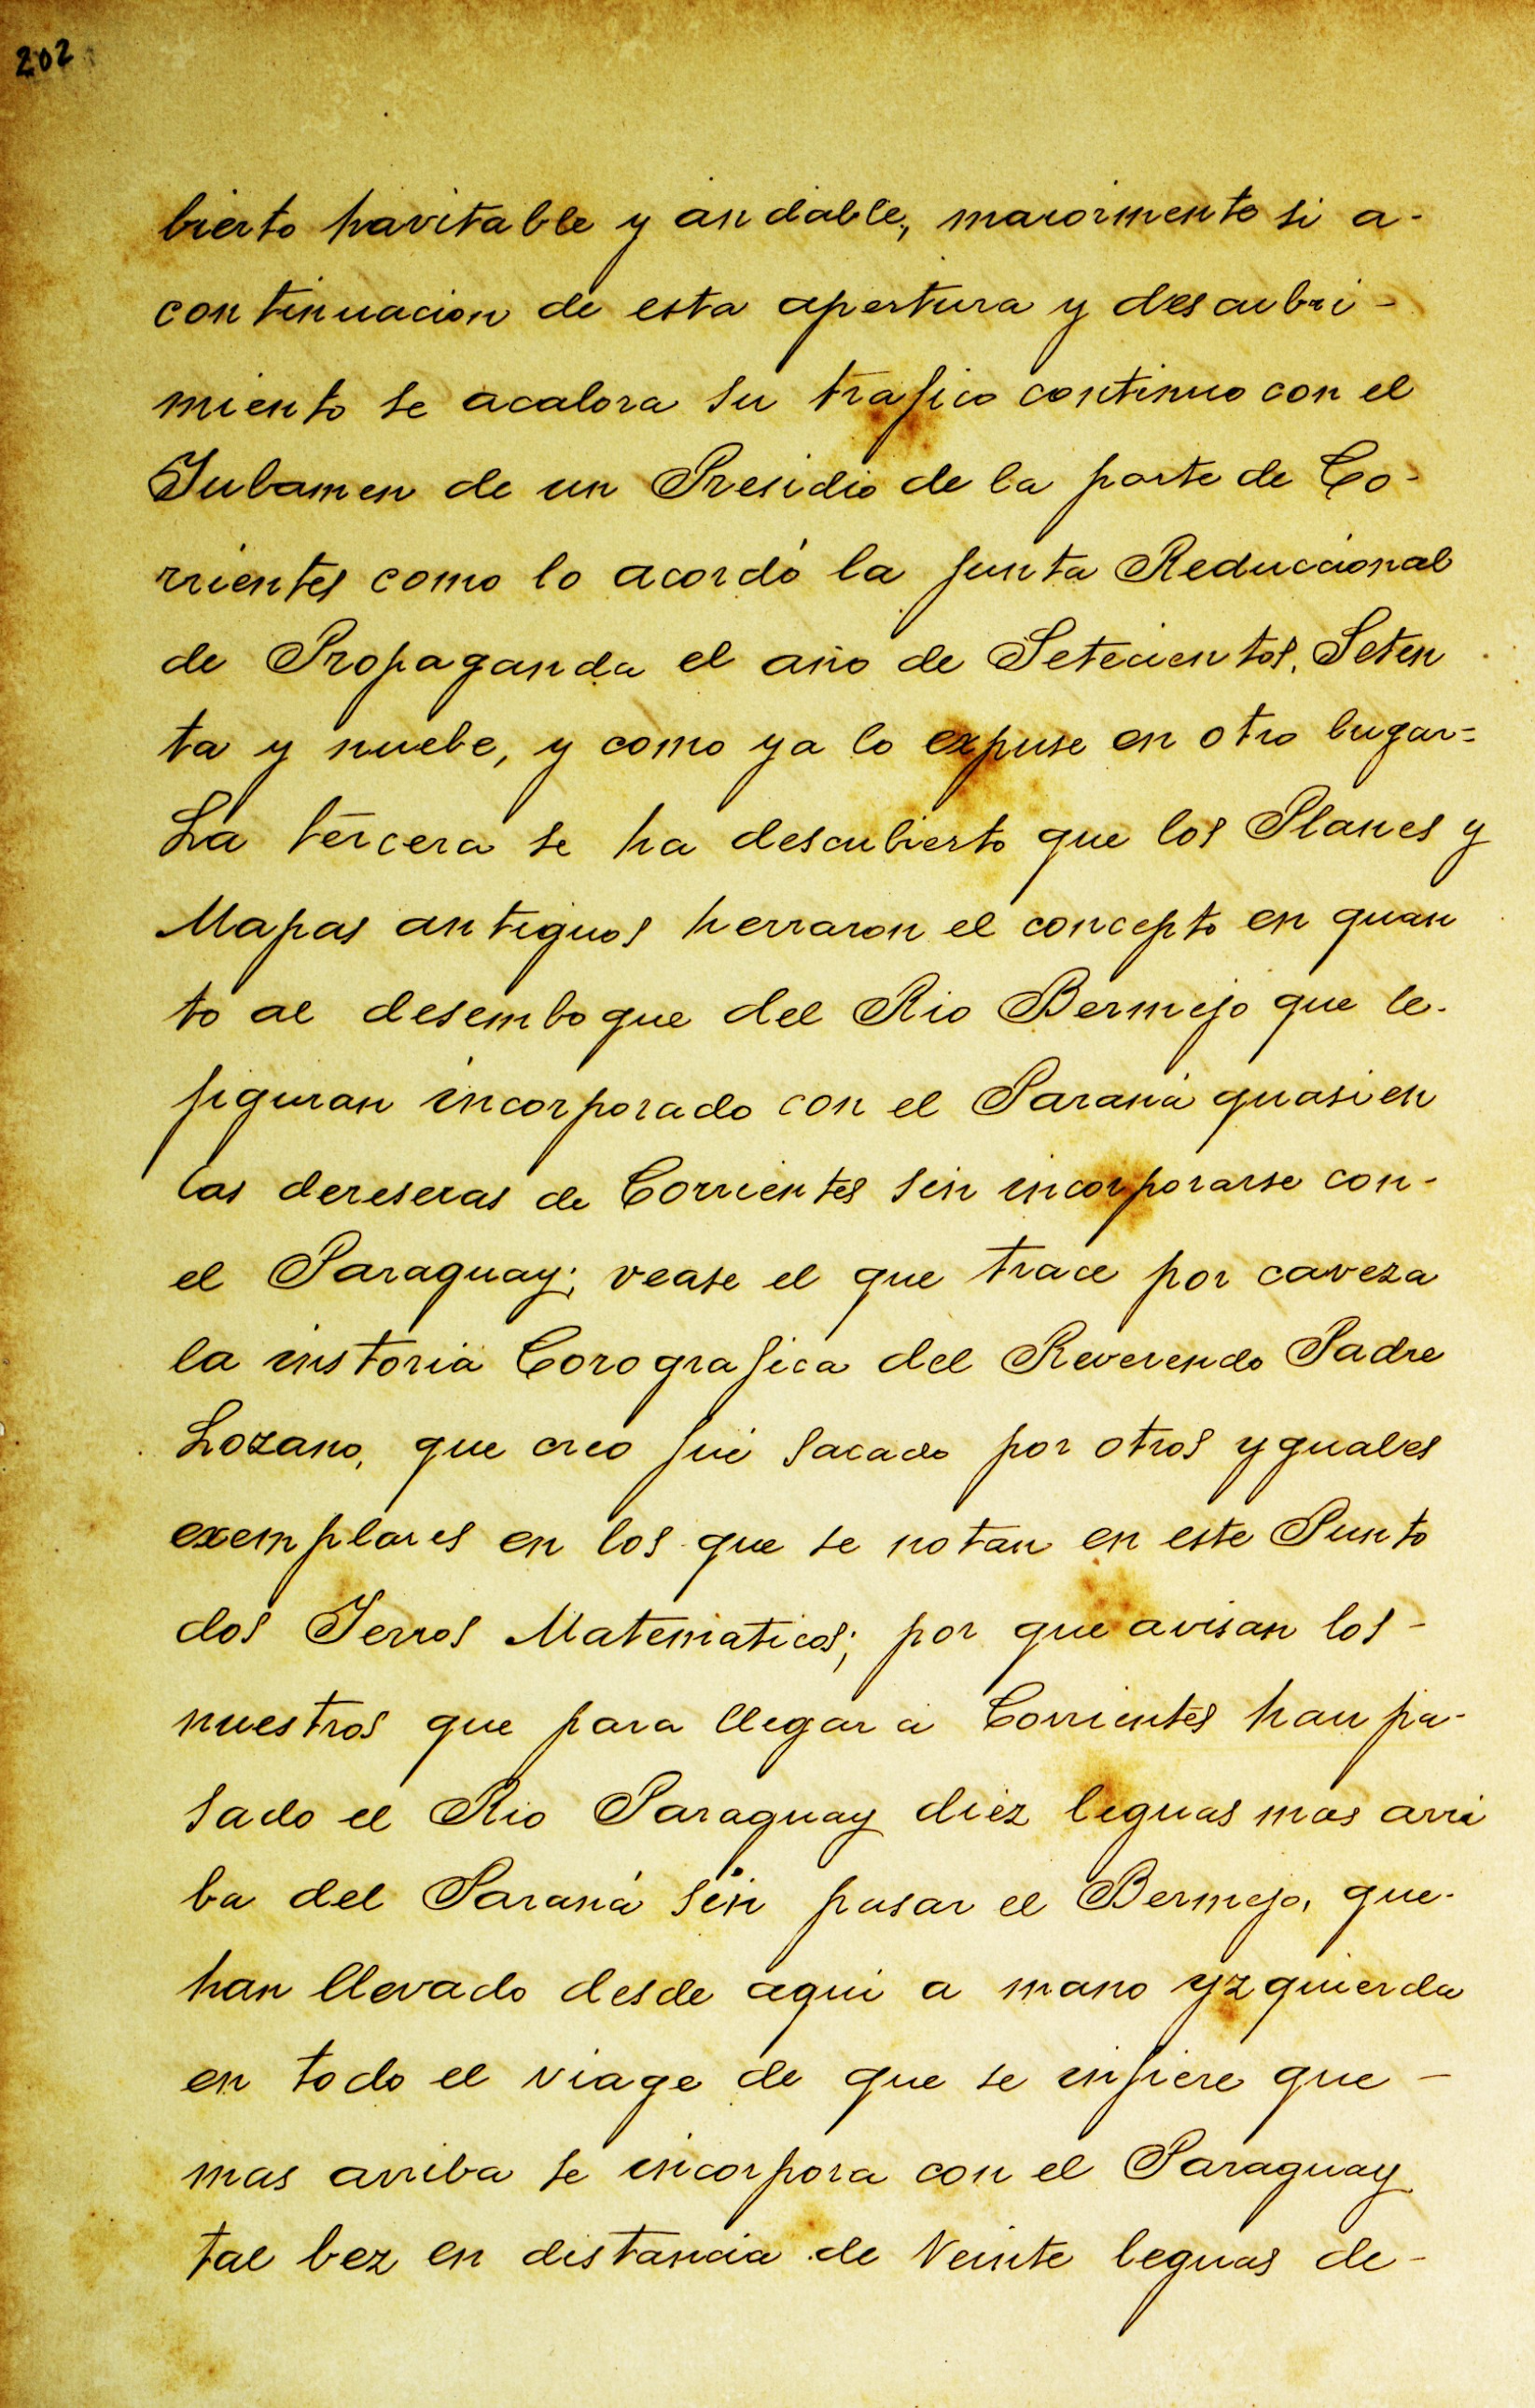 202
bierto havitable y andable, maiormente si a-
continuacion de esta apertura y descubri-
miento se acalora su trafico continuo con el
Jubamen de un Presidio de la parte de Co-
rrientes como lo acordó la Junta Reduccional
de Propaganda el año de Setecientos, Seten
ta y nuebe, y como ya lo expuse en otro lugar=
La tercera se ha descubierto que los Planes y
Mapas antiguos herraron el concepto en quan
to al desemboque del Rio Bermejo que le-
figuran incorporado con el Paraná quasi en
las dereseras de Corrientes sin incorporarse con-
el Paraguay; vease el que trace por caveza
la instoria Corografica del Reverendo Padre
Lozano, que creo fué sacado por otros yguales
exemplares en los que se notan en este Punto
dos Jerros Matematicos; por que avisan los-
nuestros que para llegar a Corrientes han pa-
sado el Rio Paraguay diez leguas mas arri
ba del Paraná sin pasar el Bermejo, que-
han llevado desde aqui a mano yzquierda
en todo el viage de que se infiere que-
mas arriba se incorpora con el Paraguay
tal bez en distancia de Veinte leguas de-